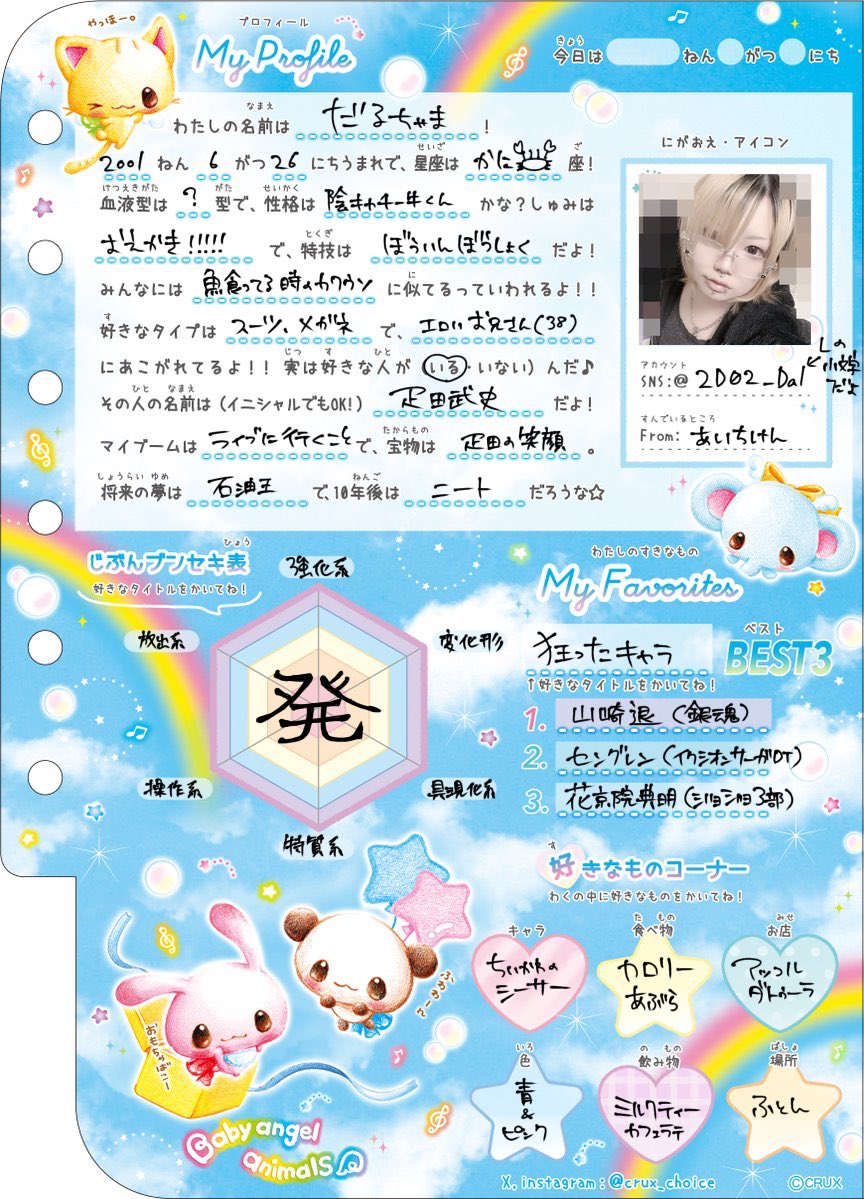 やっほー。
プロフィール
My Profile
きょう
今日は ねん がつ にち
なまえ
わたしの名前は だるちゃま !
せいざ ざ
2001 ねん 6 がつ 26 にちうまれで、星座は かに 座!
けつえきがた がた せいかく
血液型は ? 型で、性格は 陰キャチー牛くん かな?しゅみは
とくぎ
おえかき!!!!! で、特技は ぼういんぼうしょく だよ!
に
みんなには 魚食ってる時のカワウソ に似てるっていわれるよ!!
す
好きなタイプは スーツ、メガネ で、エロいお兄さん(38)
じつ す ひと
にあこがれてるよ!! 実は好きな人が (いる・いない) んだ♪
ひと なまえ
その人の名前は(イニシャルでもOK!) 疋田武史 だよ!
たからもの
マイブームは ライブに行くこと で、宝物は 疋田の笑顔 。
しょうらい ゆめ ねんご
将来の夢は 石油王 で、10年後は ニート だろうな☆
にがおえ・アイコン
アカウント
SNS:@ 2D02_Dal
Lの小文字だよ
すんでいるところ
From: あいちけん
ひょう
じぶんブンセキ表
好きなタイトルをかいてね!
強化系
放出系
変化形
発
操作系
具現化系
特質系
わたしのすきなもの
My Favorites
狂ったキャラ
ベスト
BEST3
↑好きなタイトルをかいてね!
1. 山崎退(銀魂)
2. セングレン(イクシオンサーガDT)
3. 花京院典明(ジョジョ3部)
す
好きなものコーナー
わくの中に好きなものをかいてね!
キャラ
ちいかわのシーサー
た もの
食べ物
カロリー
あぶら
みせ
お店
アッコルダトゥーラ
いろ
色
青
&
ピンク
の もの
飲み物
ミルクティー
カフェラテ
ばしょ
場所
ふとん
ふわわ〜ん
おもちゃばこー
Baby angel
animals
X, instagram : @crux_choice
©CRUX